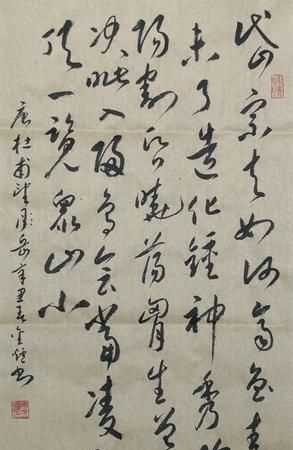 岱宗夫如何齊魯青
未了造化鍾神秀陰
陽割昏曉蕩胸生曾
决眦入歸鳥會當凌
頂一覽衆山小
唐杜甫望嶽辛丑春書